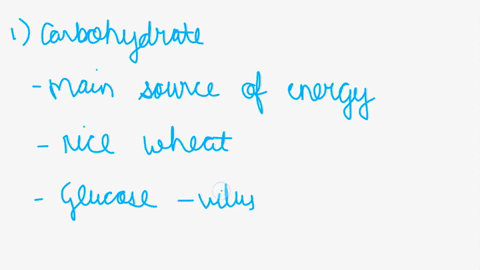 1) Carbohydrate
- Main source of energy
- rice wheat
- Glucose -